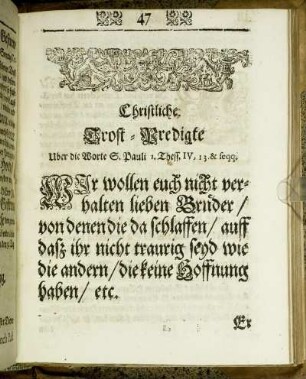 47
Christliche
Trost-Predigte
Uber die Worte S. Pauli 1. Thess. IV, 13. & seqq.
WIr wollen euch nicht ver-
halten lieben Brüder/
von denen die da schlaffen/ auff
daß ihr nicht traurig seyd wie
die andern/ die keine Hoffnung
haben/ etc.
Er